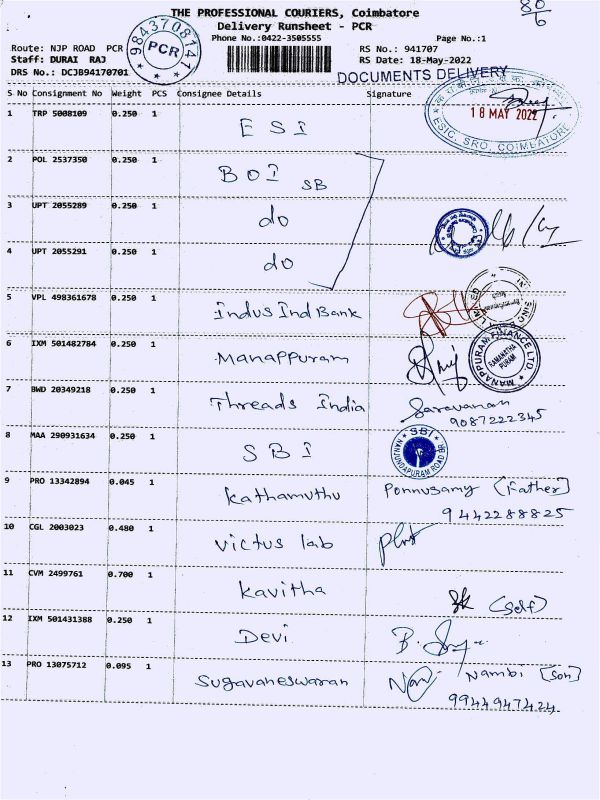 80/6
THE PROFESSIONAL COURIERS, Coimbatore
Delivery Runsheet - PCR
Phone No.:0422-3505555
Page No.:1
Route: NJP ROAD PCR
RS No.: 941707
Staff: DURAI RAJ
RS Date: 18-May-2022
DRS No.: DCJB94170701
9843708141
PCR
DOCUMENTS DELIVERY
S No Consignment No Weight PCS Consignee Details Signature
18 MAY 2022
ESIC, SRO, COIMBATORE
1 TRP 5008109 0.250 1 ESI
2 POL 2537350 0.250 1 BOI SB
3 UPT 2055289 0.250 1 do
4 UPT 2055291 0.250 1 do
5 VPL 498361678 0.250 1 IndusInd Bank
6 IXM 501482784 0.250 1 Manappuram
MANAPPURAM FINANCE LTD
RAMANATHA PURAM
7 BWD 20349218 0.250 1 Threads India Saravanan
9087222345
8 MAA 290931634 0.250 1 SBI
SBI
NANJUNDAPURAM ROAD BR
9 PRO 13342894 0.045 1 Kathamuthu Ponnusamy (Father)
9442288825
10 CGL 2003023 0.480 1 Victus lab
11 CVM 2499761 0.700 1 Kavitha (Self)
12 IXM 501431388 0.250 1 Devi
13 PRO 13075712 0.095 1 Sugavaneswaran Nambi (Son)
9944947424